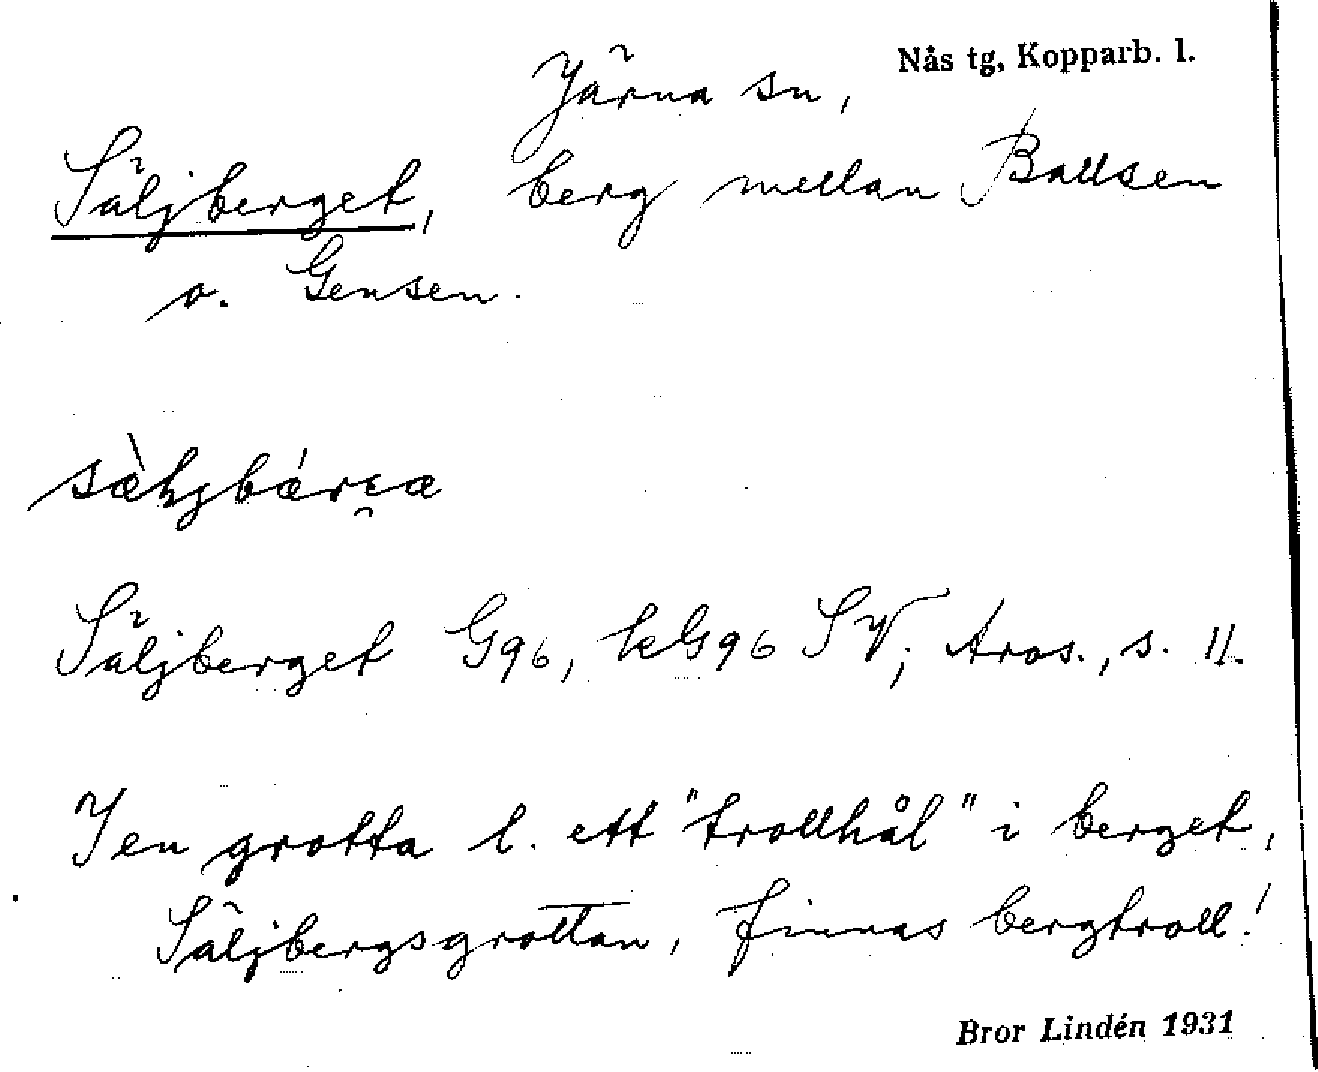 Nås tg, Kopparb. l.
Järna sn,
Säljberget, berg mellan Ballsen
o. Gensen.
Säljberget G96, kG96 SV; Aros., s. 11.
I en grotta l. ett "trollhål" i berget,
Säljbergsgrottan, finnas bergtroll!
Bror Lindén 1931